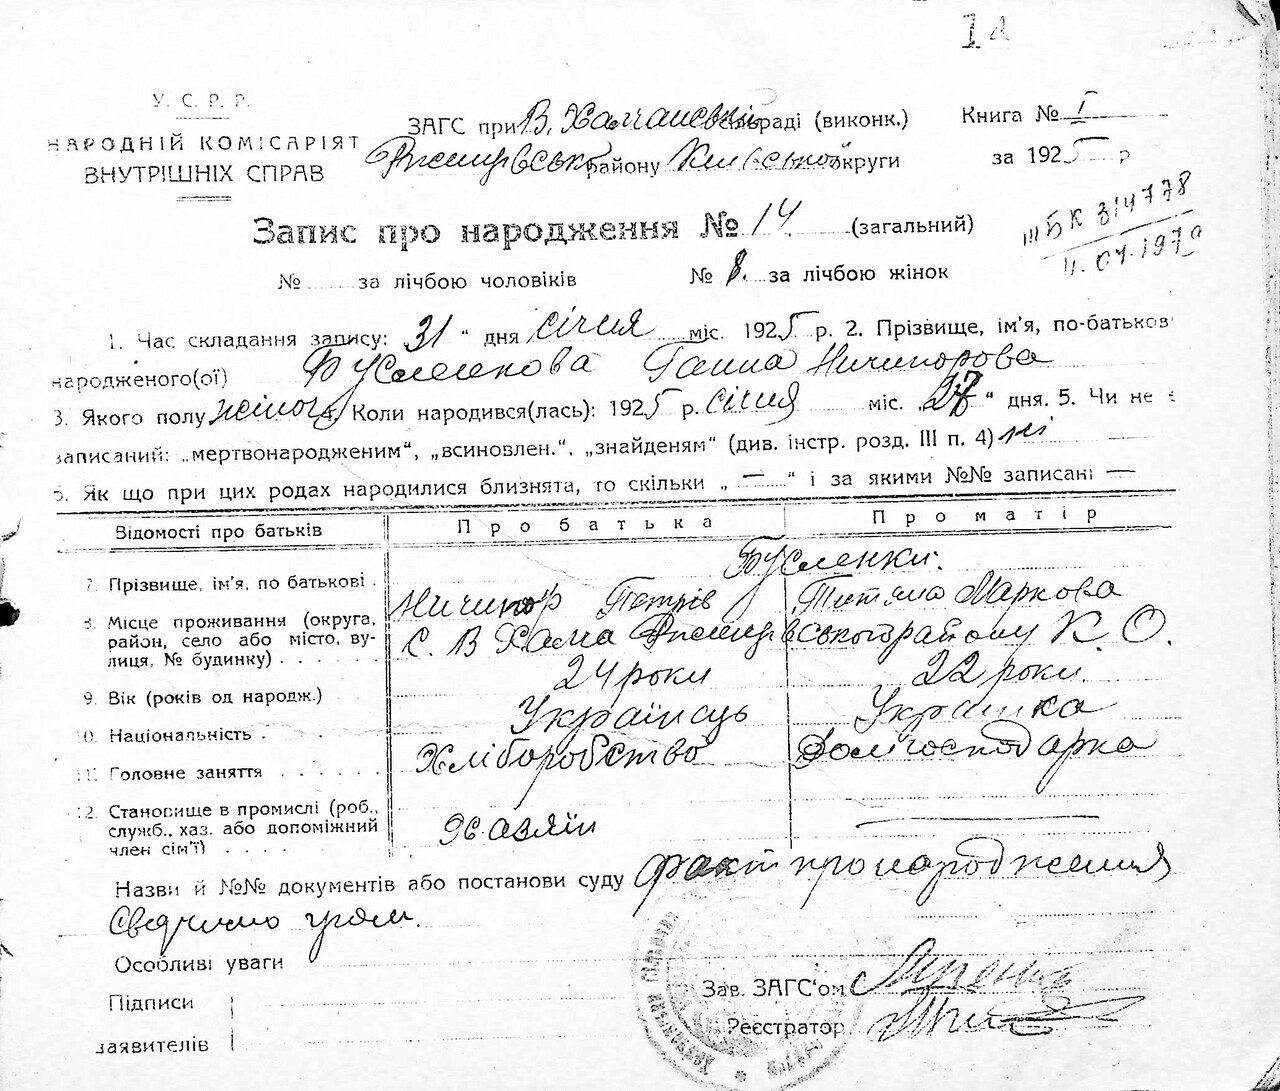 14
У. С. Р. Р.
НАРОДНІЙ КОМІСАРІЯТ
ВНУТРІШНІХ СПРАВ
ЗАГС при В. Халчанській сільраді (виконк.)
району Київської округи
Книга № I
за 1925 р
Запис про народження № 14. (загальний)
№ за лічбою чоловіків № 8. за лічбою жінок
ІІІ БК 314778
11.07.1979
1. Час складання запису: 31 " дня січня міс. 1925 р. 2. Прізвище, ім'я, по-батьков
народженого(ої) Бусленкова Ганна Ничипорова
3. Якого полу жіночо 4. Коли народився(лась): 1925 р. січня міс. „ 27 " дня. 5. Чи не є
записаний: „мертвонародженим", „всиновлен.", „знайденям" (див. інстр. розд. III п. 4) ні
6. Як що при цих родах народилися близнята, то скільки „ — " і за якими №№ записані —
Відомості про батьків Про батька Про матір
Бусленки.
7. Прізвище, ім'я, по батькові . Ничипор Петрів Титяна Маркова
8. Місце проживання (округа,
район, село або місто, ву-
лиця, № будинку) . . . . . . С. В Халча району К. О.
9. Вік (років од народж.) 24 роки 22 роки.
10. Національність . Українець Українка
11. Головне заняття . . . . . . Хліборобство Домгосподарка
12. Становище в промислі (роб.,
служб., хаз. або допоміжний
член сім'ї) . . . . Хазяїн —
Назви й №№ документів або постанови суду факт про народження
Особливі уваги
Підписи
заявителів
Зав. ЗАГС'ом
Реєстратор